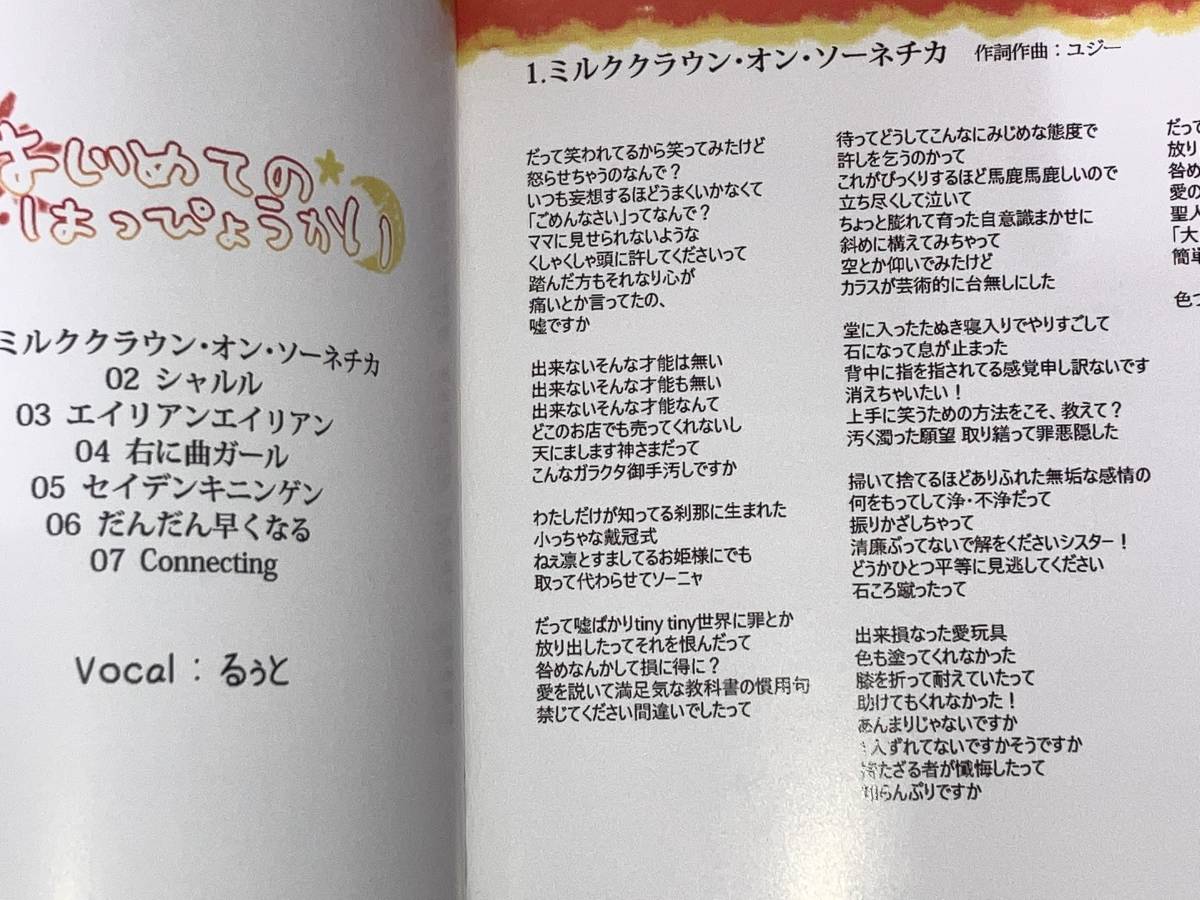 はじめての
はっぴょうかい
ミルククラウン・オン・ソーネチカ
02 シャルル
03 エイリアンエイリアン
04 右に曲ガール
05 セイデンキニンゲン
06 だんだん早くなる
07 Connecting
Vocal : るぅと
1.ミルククラウン・オン・ソーネチカ 作詞作曲：ユジー
だって笑われてるから笑ってみたけど
怒らせちゃうのなんで？
いつも妄想するほどうまくいかなくて
「ごめんなさい」ってなんで？
ママに見せられないような
くしゃくしゃ頭に許してくださいって
踏んだ方もそれなり心が
痛いとか言ってたの、
嘘ですか
出来ないそんな才能は無い
出来ないそんな才能も無い
出来ないそんな才能なんて
どこのお店でも売ってくれないし
天にまします神さまだって
こんなガラクタ御手汚しですか
わたしだけが知ってる刹那に生まれた
小っちゃな戴冠式
ねえ凛とすましてるお姫様にでも
取って代わらせてソーニャ
だって嘘ばかりtiny tiny世界に罪とか
放り出したってそれを恨んだって
咎めなんかして損に得に？
愛を説いて満足気な教科書の慣用句
禁じてください間違いでしたって
待ってどうしてこんなにみじめな態度で
許しを乞うのかって
これがびっくりするほど馬鹿馬鹿しいので
立ち尽くして泣いて
ちょっと膨れて育った自意識まかせに
斜めに構えてみちゃって
空とか仰いでみたけど
カラスが芸術的に台無しにした
堂に入ったたぬき寝入りでやりすごして
石になって息が止まった
背中に指を指されてる感覚申し訳ないです
消えちゃいたい！
上手に笑うための方法をこそ、教えて？
汚く濁った願望 取り繕って罪悪隠した
掃いて捨てるほどありふれた無垢な感情の
何をもってして浄・不浄だって
振りかざしちゃって
清廉ぶってないで解をくださいシスター！
どうかひとつ平等に見逃してください
石ころ蹴ったって
出来損なった愛玩具
色も塗ってくれなかった
膝を折って耐えていたって
助けてもくれなかった！
あんまりじゃないですか
入ずれてないですかそうですか
たざる者が懺悔したって
らんぷりですか
だって
放り
咎め
愛の
聖人
「大
簡単
色つ